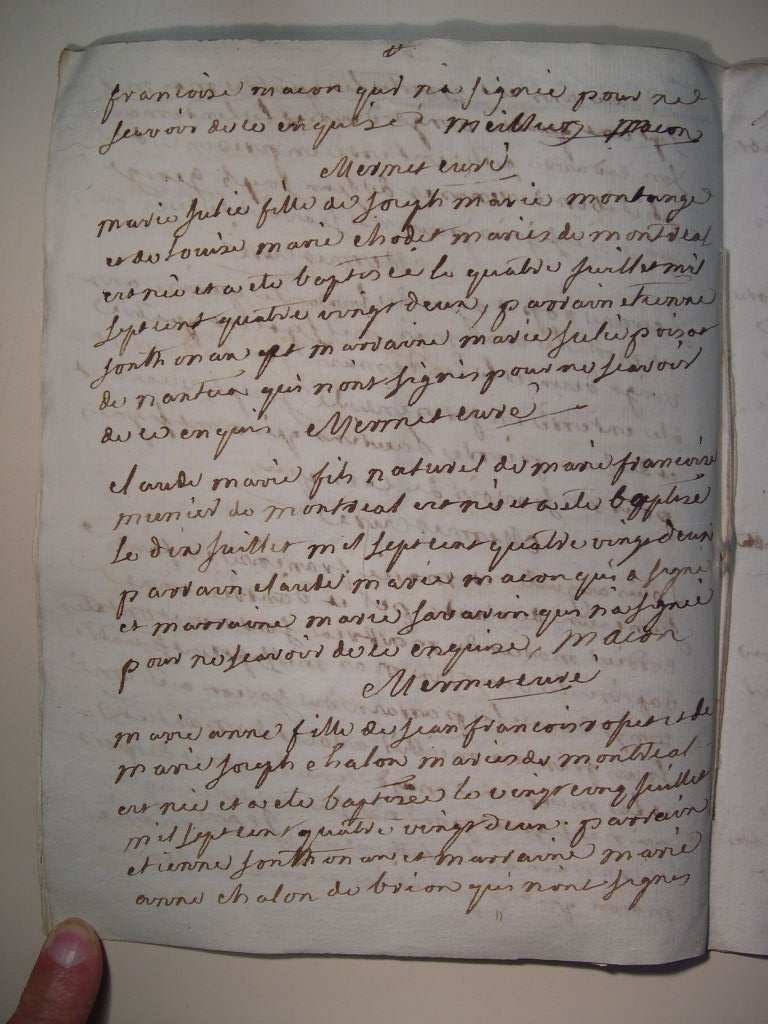 francoise macon qui n'a signée pour ne
scavoir de ce enquise meilleur macon
Mermet curé
marie julie fille de joseph marie montange
et de louise marie chodet mariés de montréal
est née et a eté baptisée le quatre juillet mil
sept cent quatre vingt deux, parrain etienne
sonthonax et marraine marie julie poisat
de nantua qui n'ont signés pour ne scavoir
de ce enquis Mermet curé
claude marie fils naturel de marie francoise
munier de montréal est né et a eté baptisé
le dix juillet mil sept cent quatre vingt deux
parrain claude marie macon qui a signé
et marraine marie sarravin qui n'a signée
pour ne scavoir de ce enquise, macon
Mermet curé
marie anne fille de jean francois ropet et de
marie joseph chalon mariés de montréal
est née et a eté baptisée le vingt cinq juillet
mil sept cent quatre vingt deux. parrain
etienne sonthonax et marraine marie
anne chalon de brion qui n'ont signés